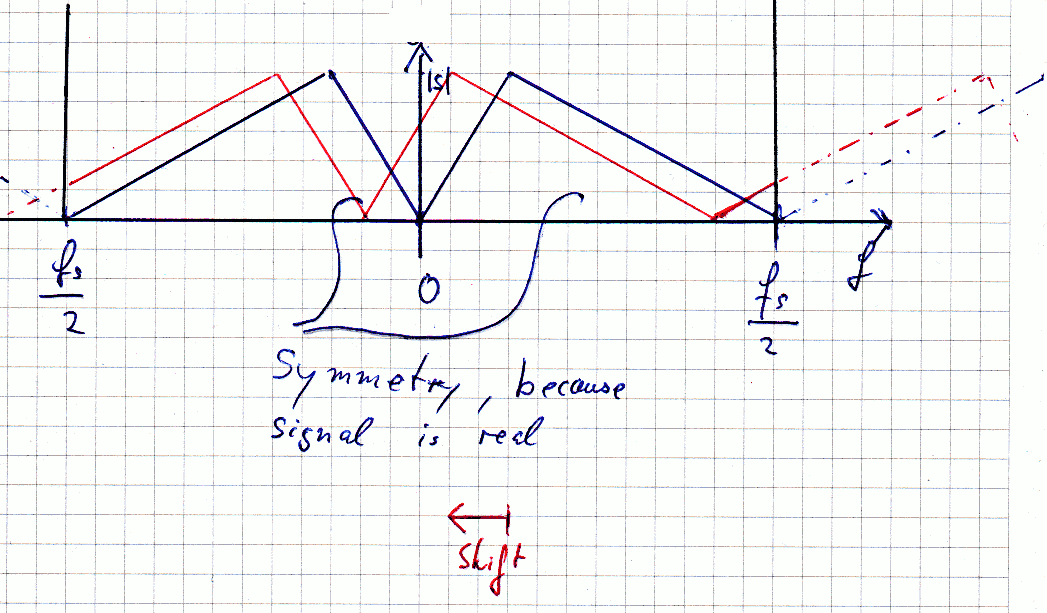 |s|
fs/2
0
fs/2
f
Symmetry, because
signal is real
Shift